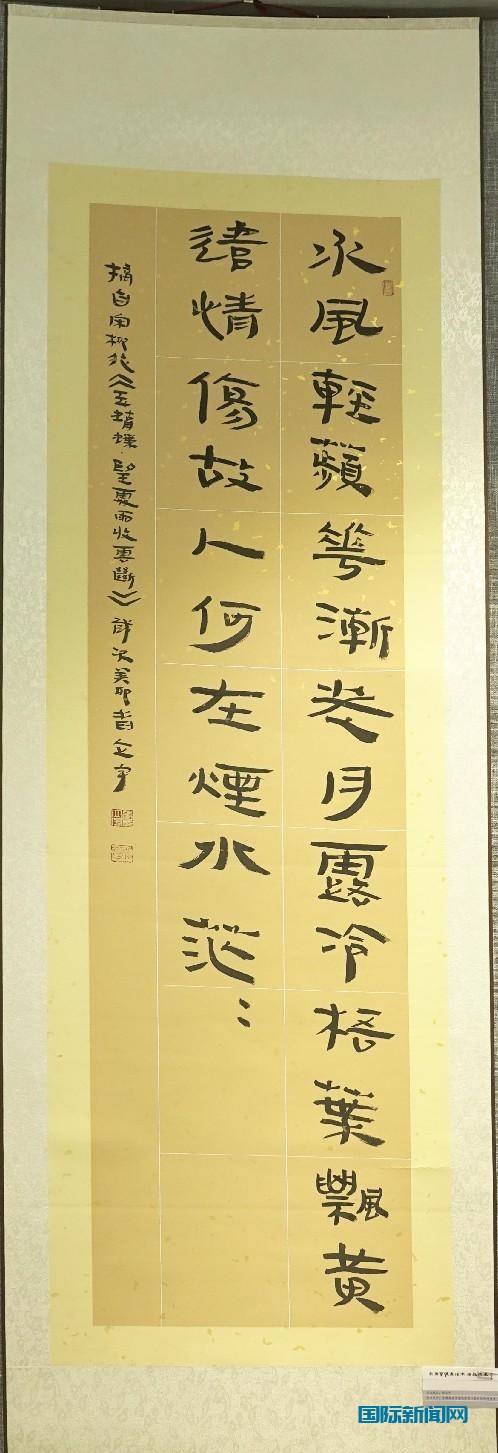 水風輕蘋華漸老月露冷梧葉飄黃
遣情傷故人何在煙水茫々
摘自宋柳永《玉蝴蝶·望處雨收雲斷》歲次癸卯春
国际新闻网